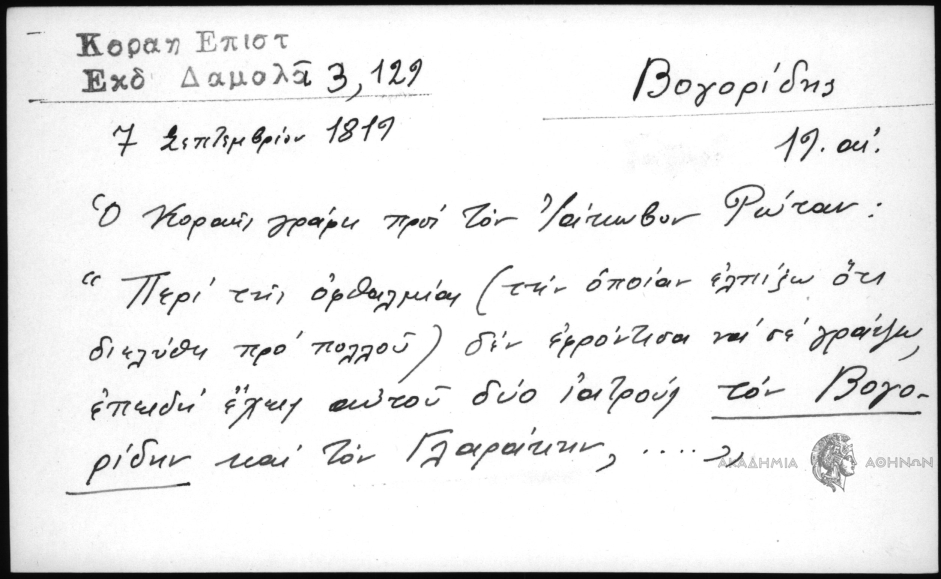 Κοραη Επιστ
Εκδ Δαμολᾶ 3, 129
Βογορίδης
7 Σεπτεμβρίου 1819
19. αι.
Ὁ Κοραῆς γράφει πρός τόν Ἰάκωβον Ρώταν:
“ Περί τῆς ὀφθαλμίας (τήν ὁποίαν ἐλπίζω ὅτι
διελύθη πρό πολλοῦ) δέν ἐφρόντισα νά σέ γράψω,
ἐπειδή ἔχεις αὐτοῦ δύο ἰατρούς τόν Βογο-
ρίδην καί τόν Γλαράκην, ....„
ΑΚΑΔΗΜΙΑ ΑΘΗΝΩΝ